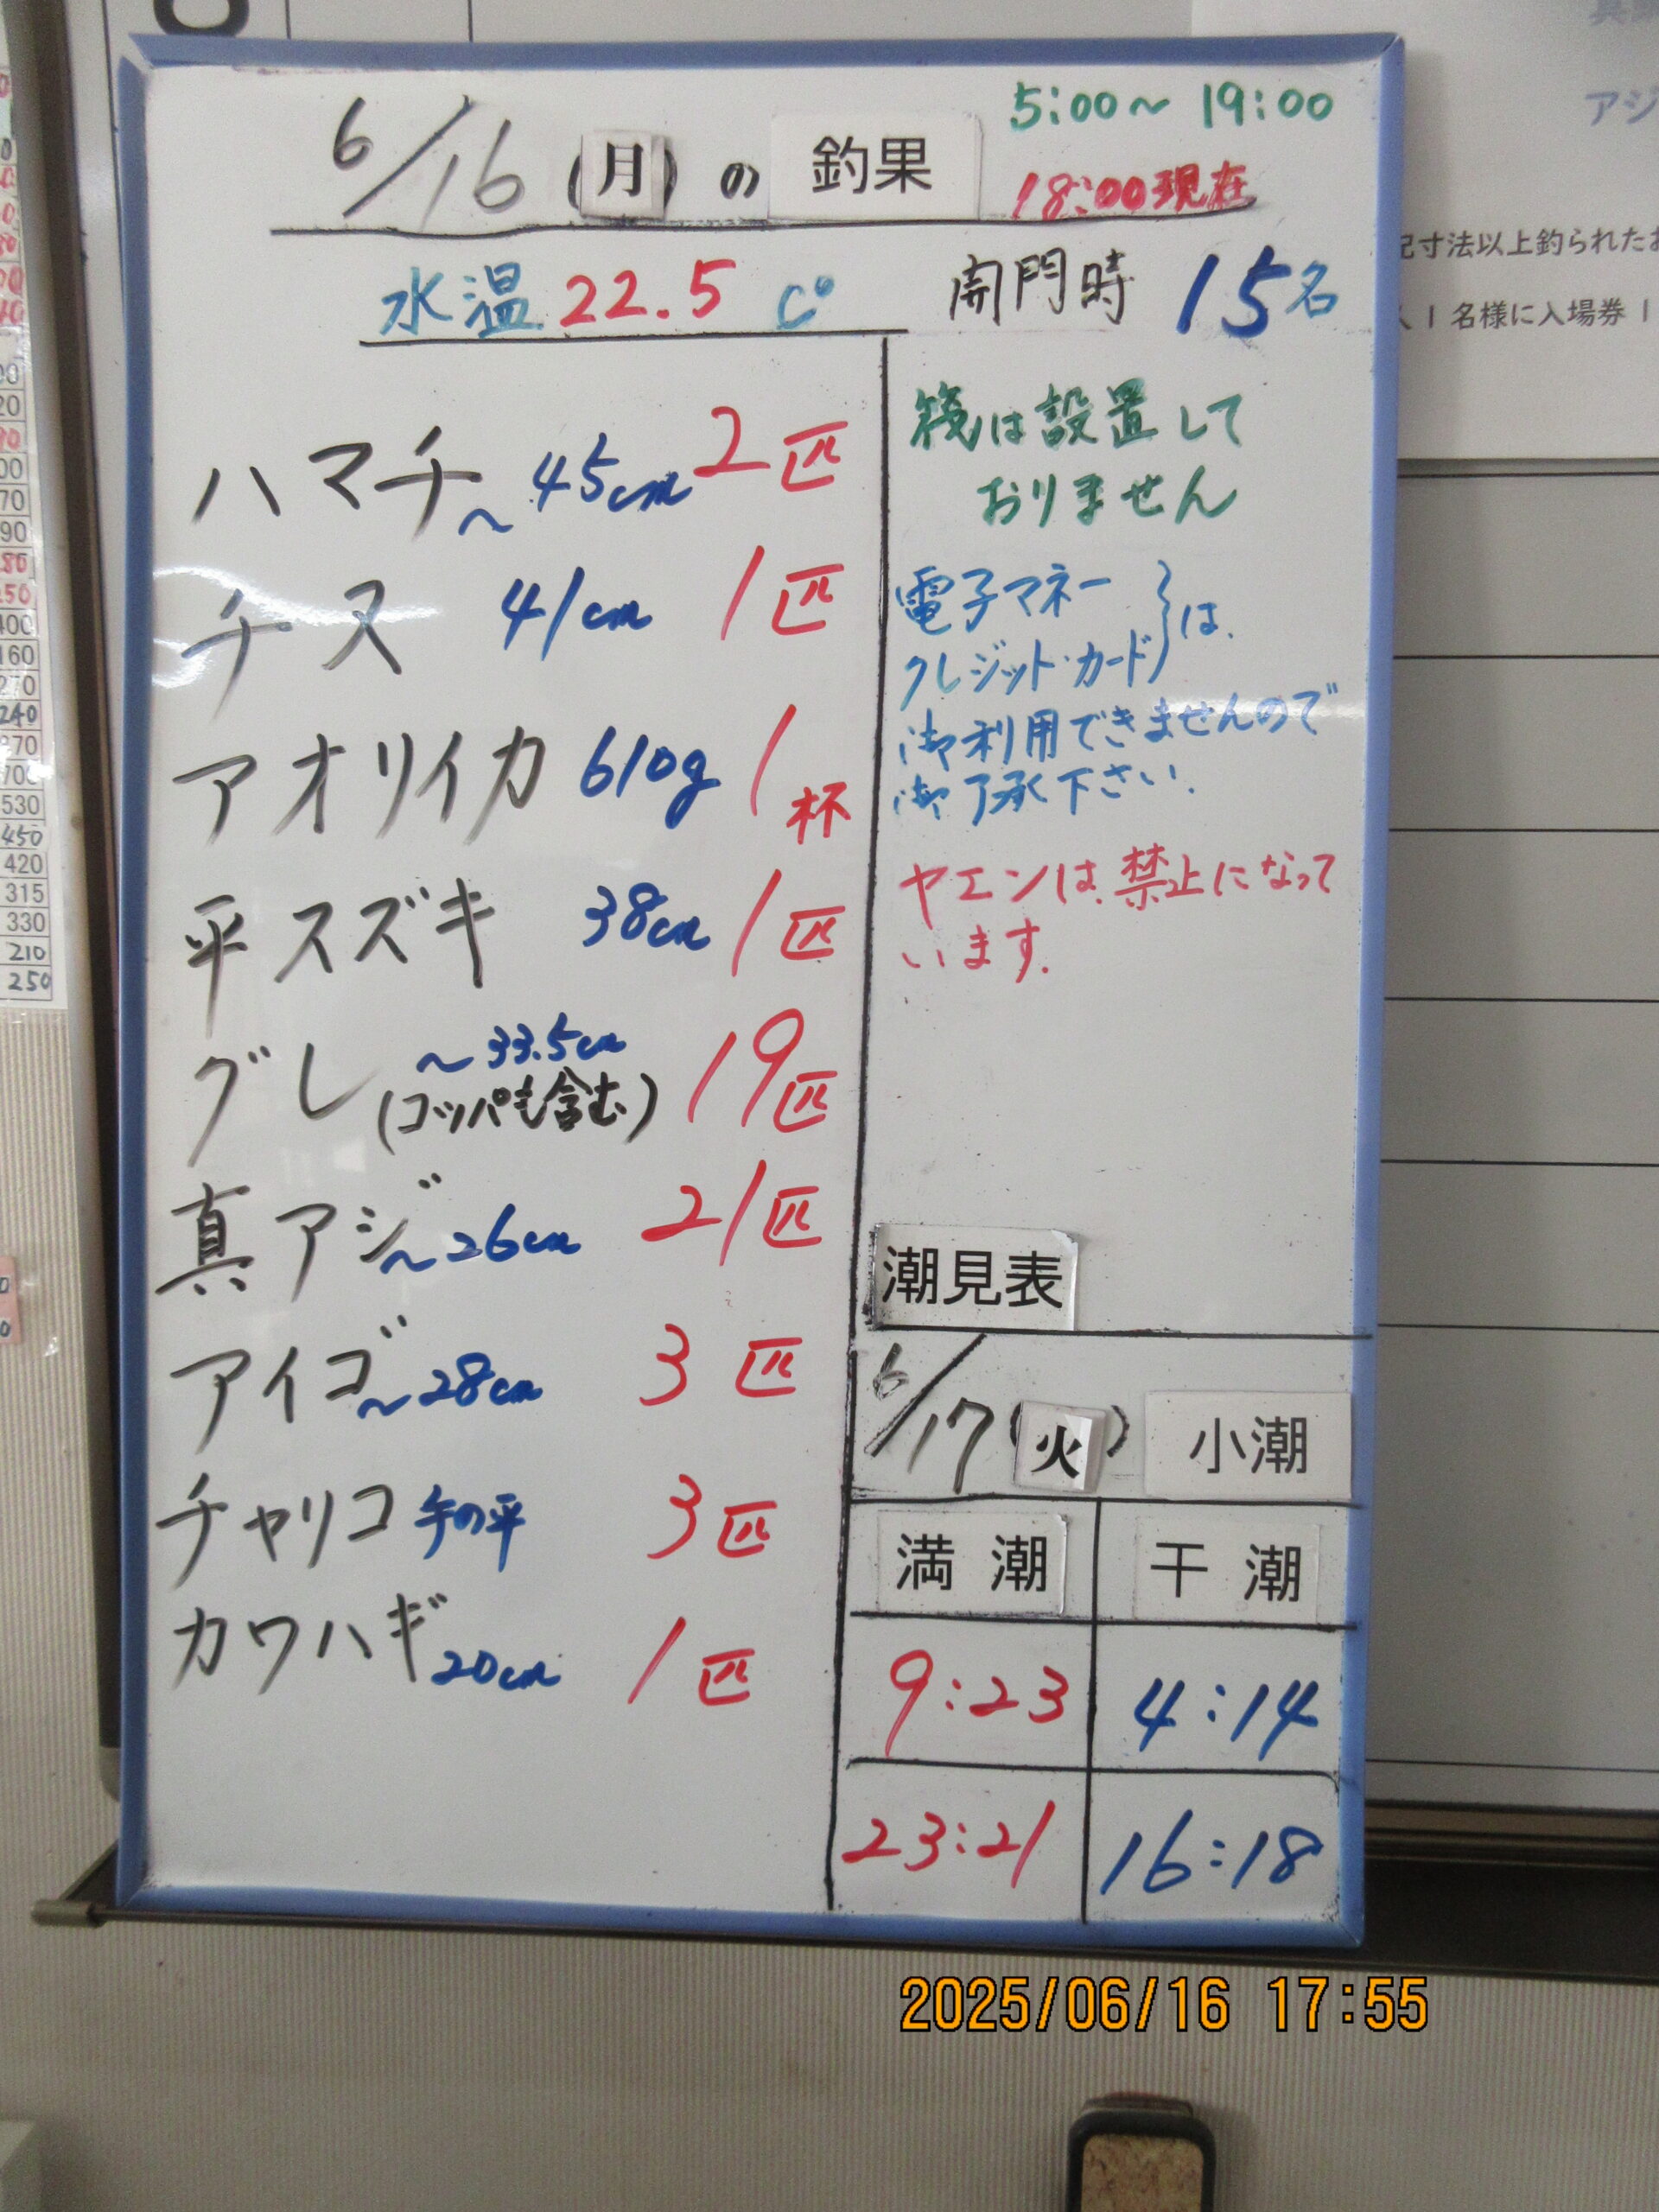 6/16(月)の 釣果
5:00～19:00
18:00現在
水温 22.5 C°
開門時 15名
ハマチ ～45cm 2匹
チヌ 41cm 1匹
アオリイカ 610g 1杯
平スズキ 38cm 1匹
グレ ～33.5cm (コッパも含む) 19匹
真アジ ～26cm 21匹
アイゴ ～28cm 3匹
チャリコ 手の平 3匹
カワハギ 20cm 1匹
筏は設置して
おりません
電子マネー
クレジット・カード}は、
御利用できませんので
御了承下さい.
ヤエンは、禁止になって
います.
潮見表
6/17(火) 小潮
満潮 干潮
9:23 4:14
23:21 16:18
アジ
記寸法以上釣られたお
人1名様に入場券1
90
80
250
400
160
270
240
870
700
530
450
420
315
330
210
250
2025/06/16 17:55